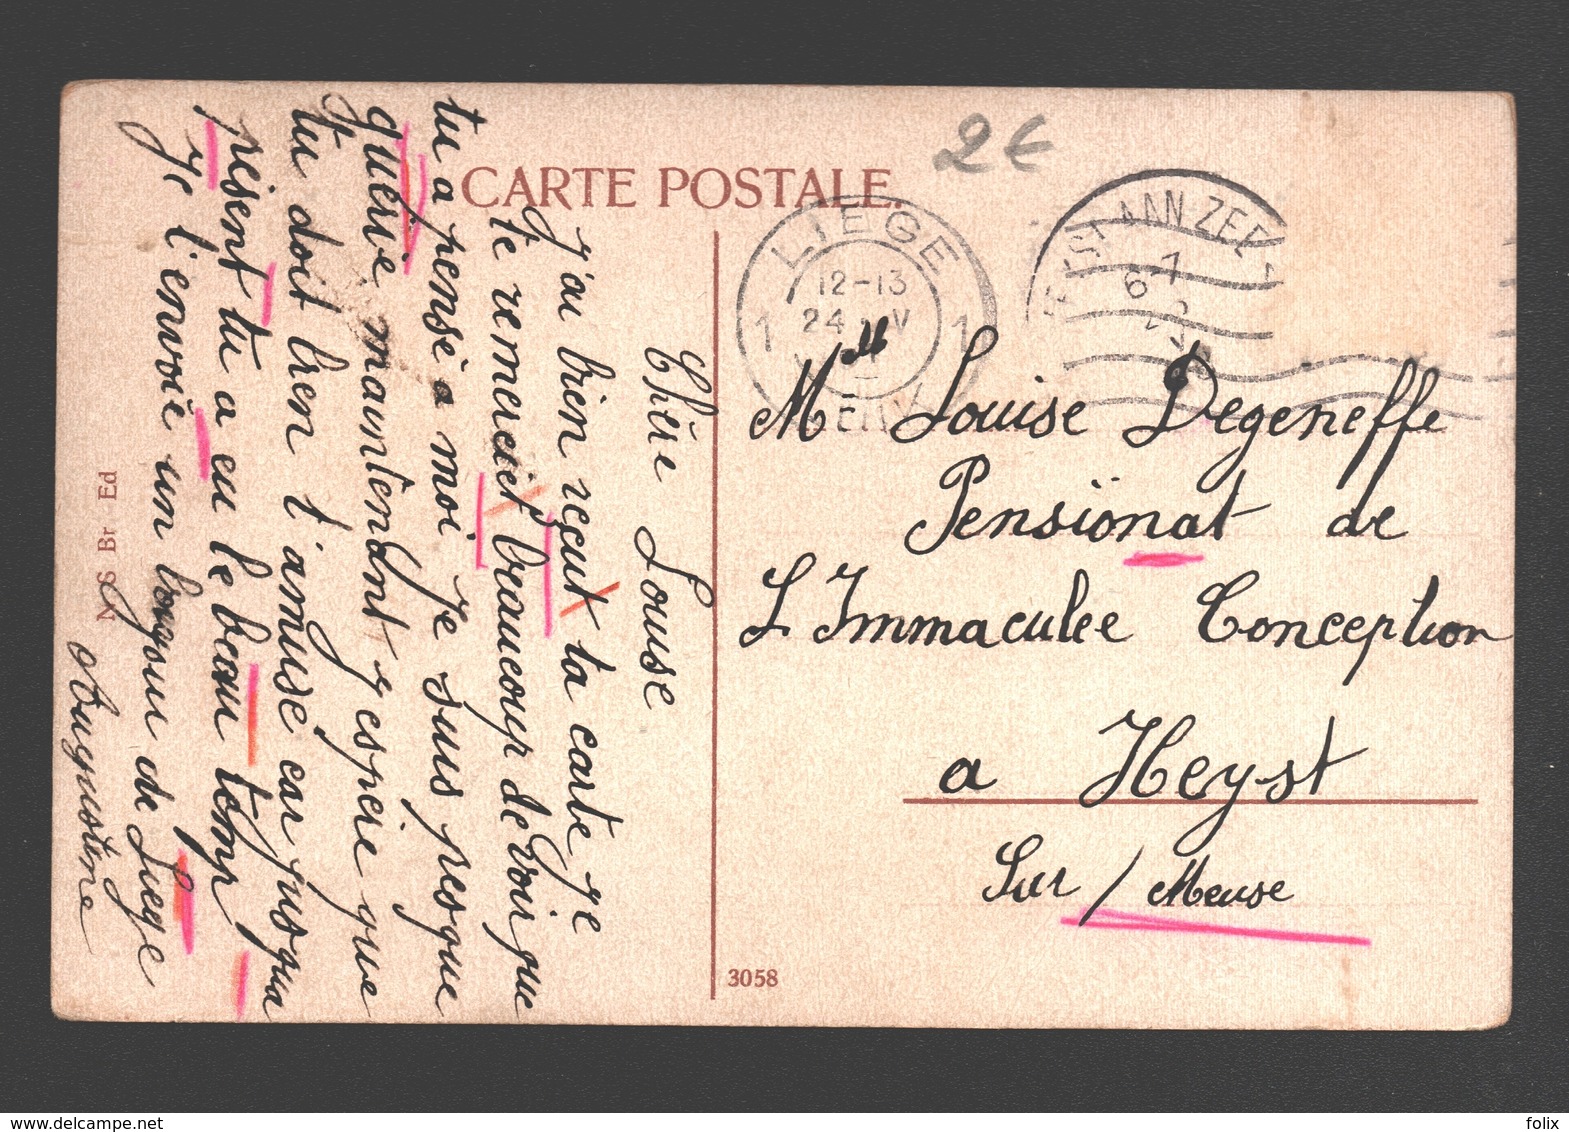 CARTE POSTALE.
2€
LIEGE
1 12-13 1
24 V
ST AAN ZEE
7
6
Chère Louise
J'ai bien reçut ta carte je
te remerciet beaucoup de voir que
tu a pensé a moi. Je suis presque
guérie maintendant j'espere que
tu doit bien t'amusé car jusqua
présent tu a eu le beau temp
Je t'envoie un de Liege
Augustine
N S Br - Ed
Mlle Louise Degeneffe
Pensionat de
L'Immaculée Conception
a Heyst
Sur / Meuse
3058
delcampe.net
folix